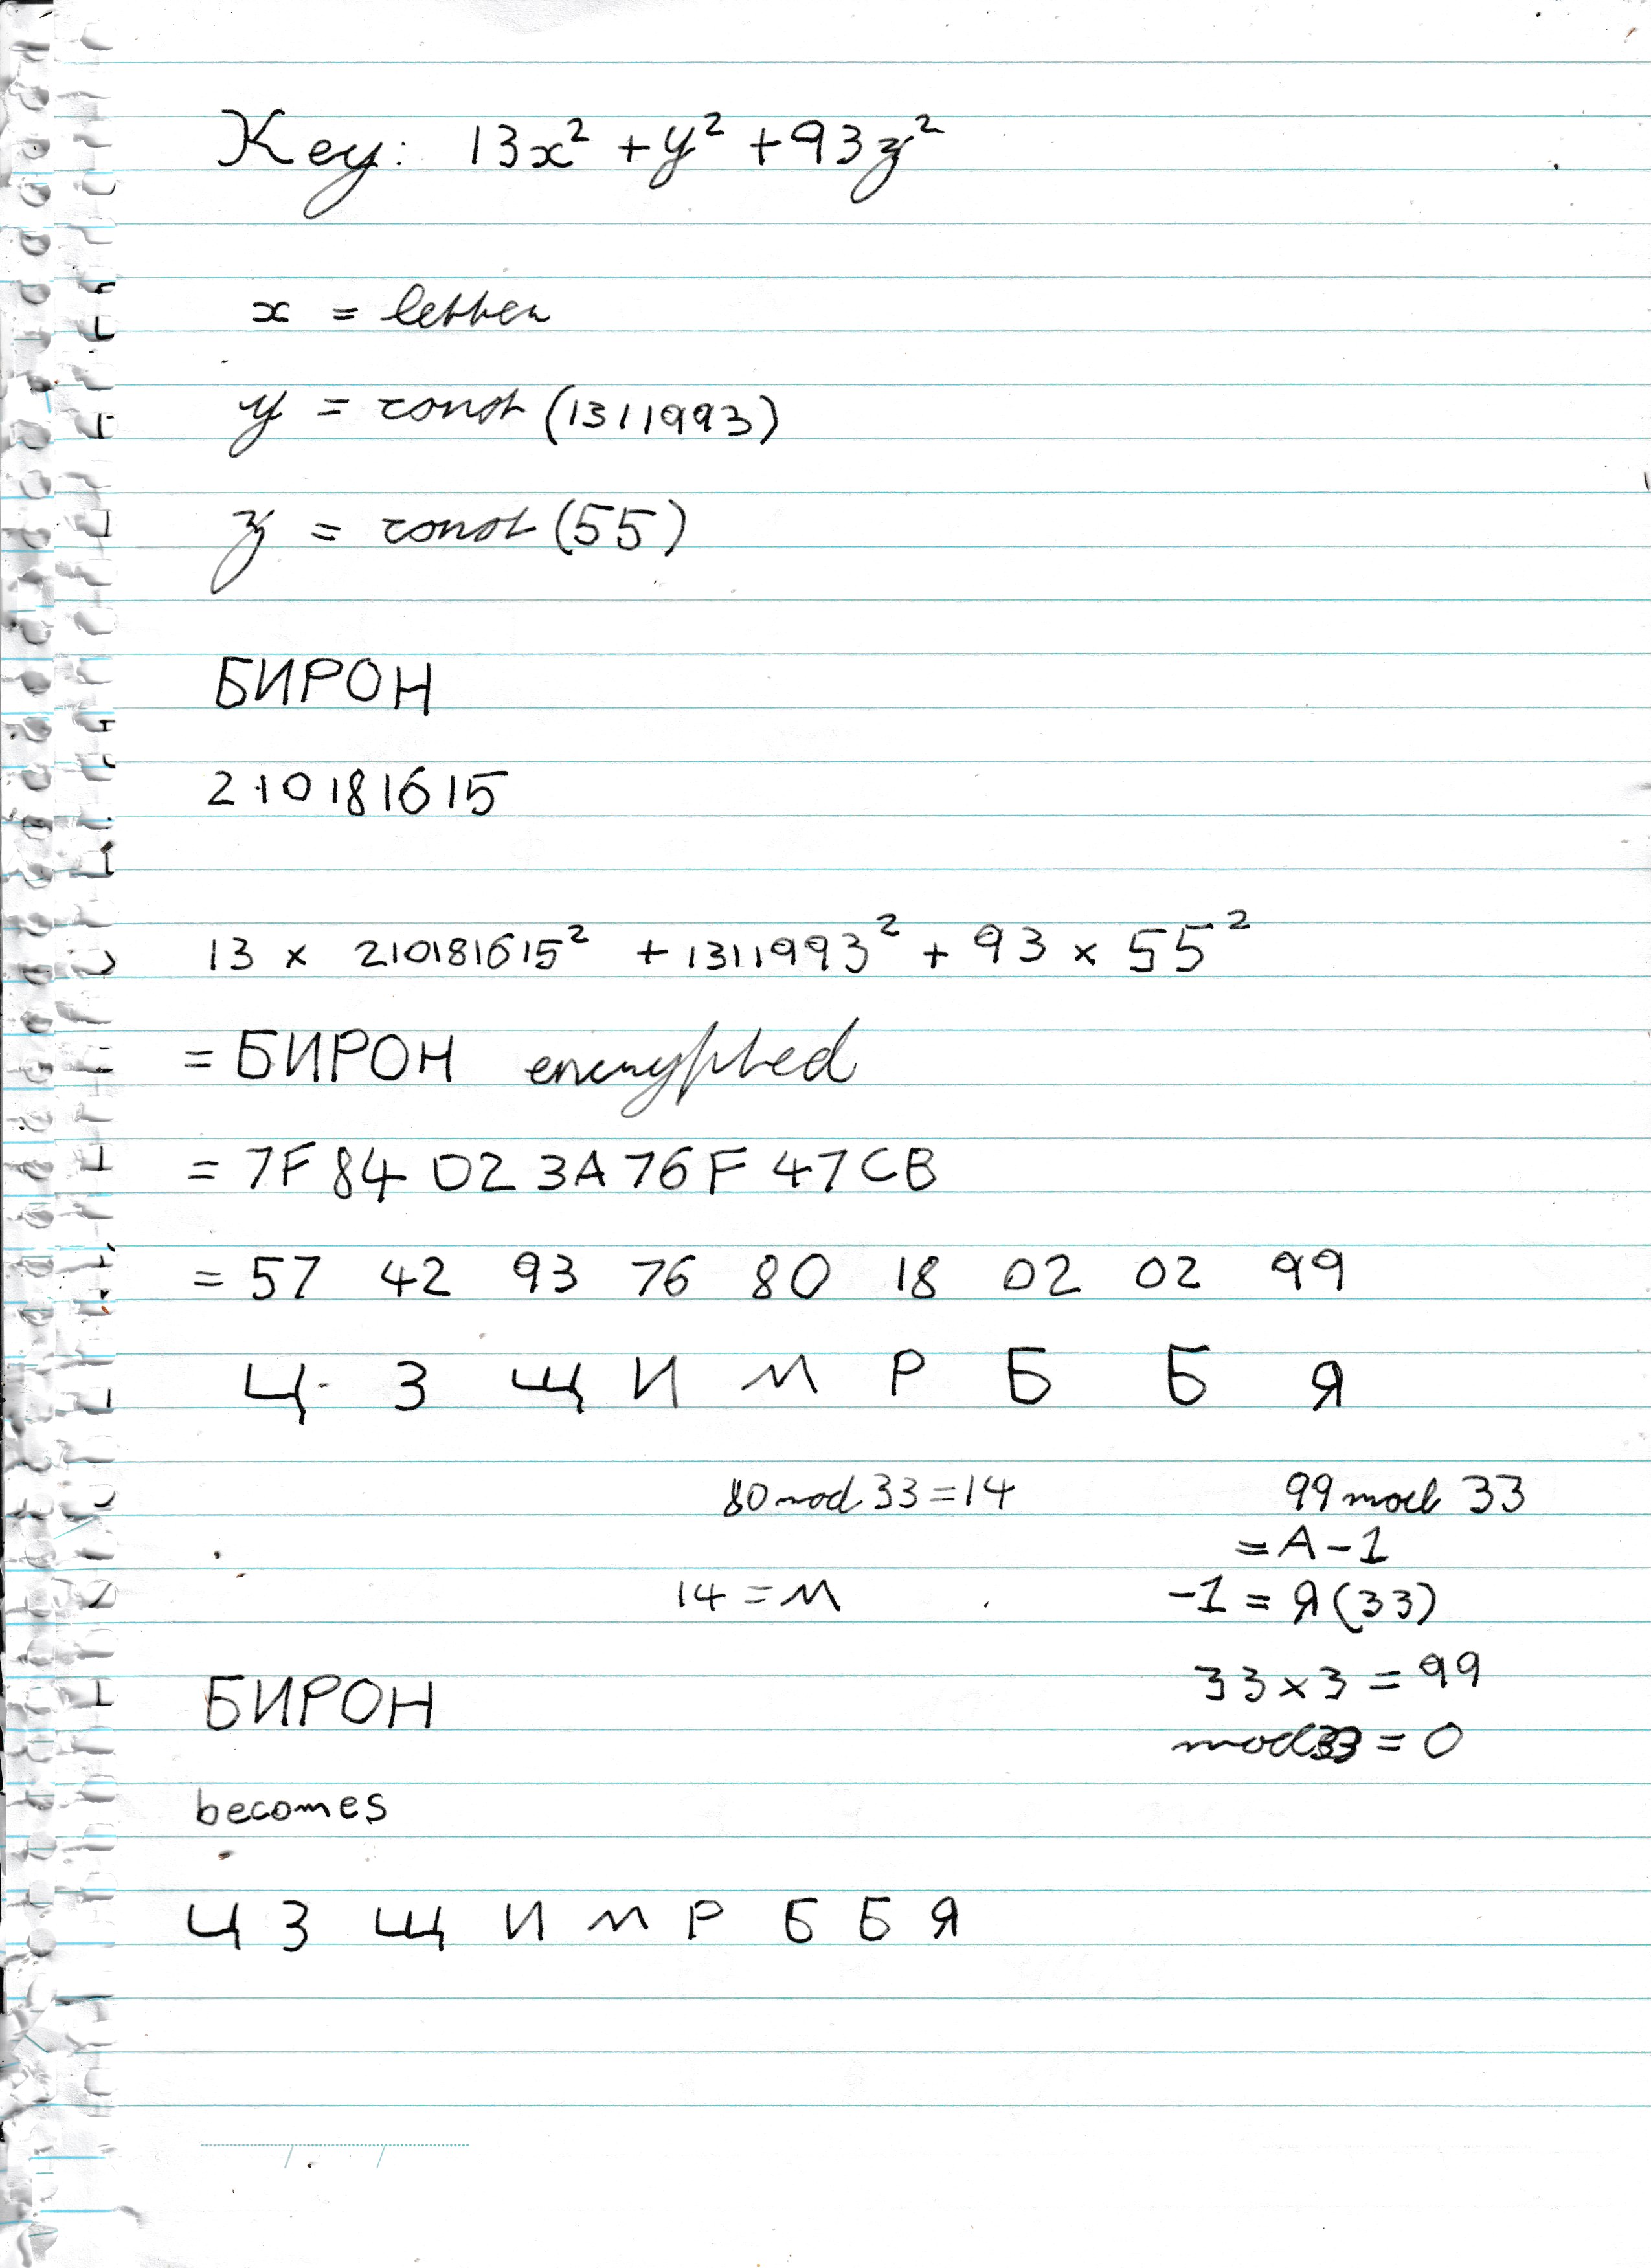 Key: 13x² + y² + 93z²
x = letter
y = const (1311993)
z = const (55)
БИРОН
210181615
13 × 210181615² + 1311993² + 93 × 55²
= БИРОН encrypted
= 7F 84 D2 3A 76 F 47CB
= 57 42 93 76 80 18 02 02 99
Ц З Щ И М Р Б Б Я
80 mod 33 = 14
14 = М
99 mod 33
= А - 1
-1 = Я (33)
33 × 3 = 99
mod 33 = 0
БИРОН
becomes
Ц З Щ И М Р Б Б Я